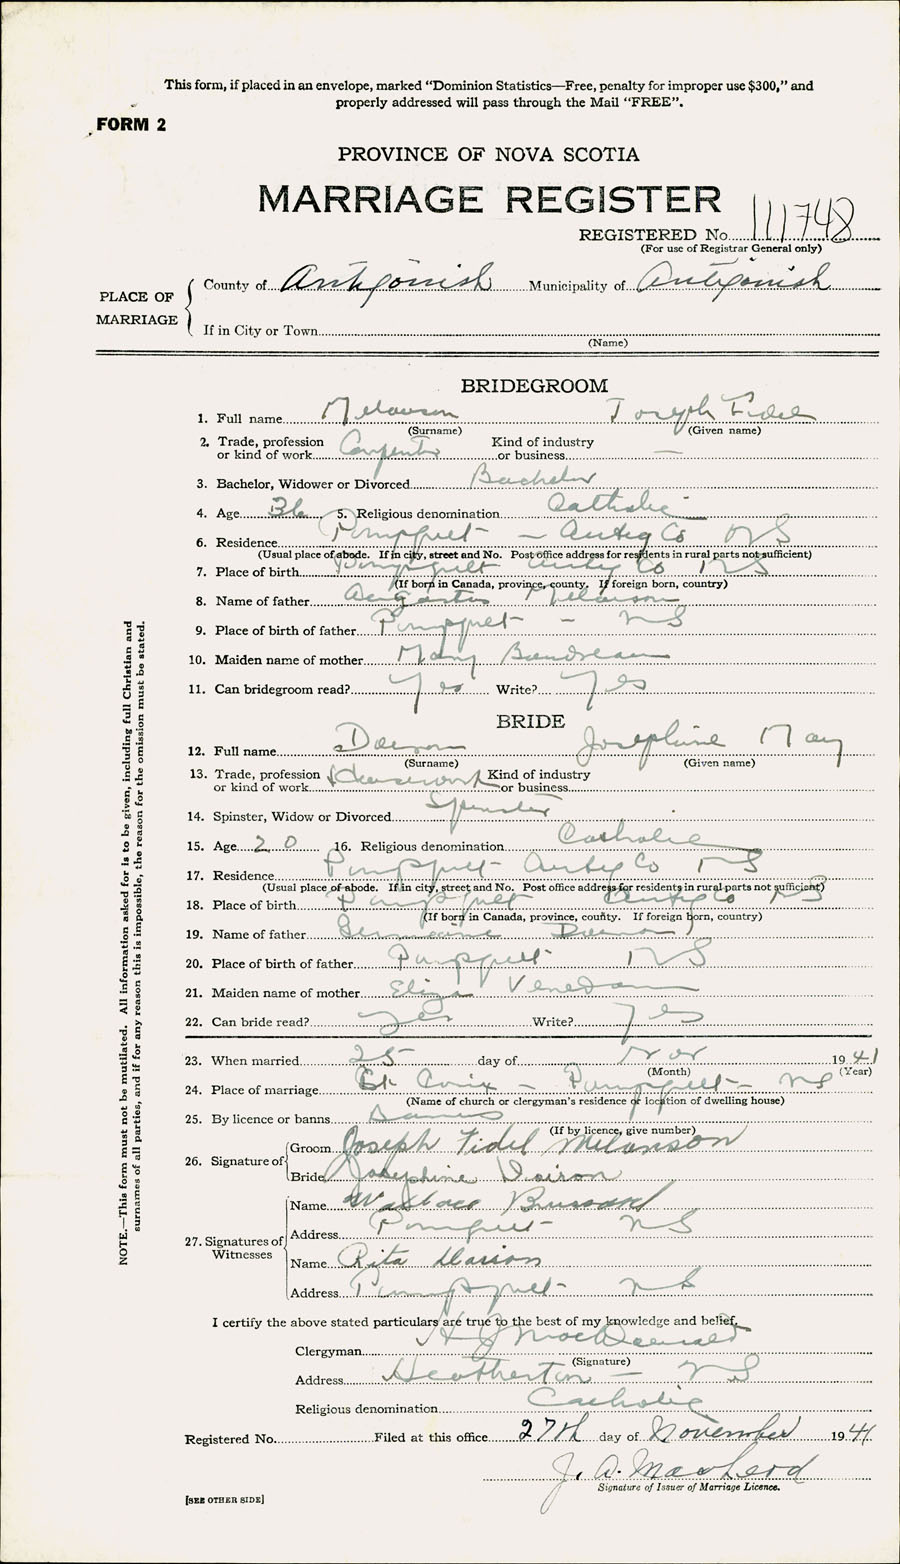 This form, if placed in an envelope, marked “Dominion Statistics—Free, penalty for improper use $300,” and
properly addressed will pass through the Mail “FREE”.
FORM 2
PROVINCE OF NOVA SCOTIA
MARRIAGE REGISTER
REGISTERED No. 111748
(For use of Registrar General only)
PLACE OF MARRIAGE
County of Antigonish Municipality of Antigonish
If in City or Town
(Name)
BRIDEGROOM
1. Full name Melanson Joseph Fidel
(Surname) (Given name)
2. Trade, profession or kind of work Carpenter Kind of industry or business —
3. Bachelor, Widower or Divorced Bachelor
4. Age 36 5. Religious denomination Catholic
6. Residence Pomquet — Antig Co NS
(Usual place of abode. If in city, street and No. Post office address for residents in rural parts not sufficient)
7. Place of birth Pomquet Antig Co NS
(If born in Canada, province, county. If foreign born, country)
8. Name of father Melanson
9. Place of birth of father Pomquet - NS
10. Maiden name of mother Mary Boudreau
11. Can bridegroom read? Yes Write? Yes
BRIDE
12. Full name Josephine May
(Surname) (Given name)
13. Trade, profession or kind of work Housework Kind of industry or business
14. Spinster, Widow or Divorced Spinster
15. Age 20 16. Religious denomination Catholic
17. Residence Pomquet Antig Co NS
(Usual place of abode. If in city, street and No. Post office address for residents in rural parts not sufficient)
18. Place of birth Pomquet Antig Co NS
(If born in Canada, province, county. If foreign born, country)
19. Name of father
20. Place of birth of father Pomquet NS
21. Maiden name of mother Eliza
22. Can bride read? Yes Write? Yes
23. When married 25 day of Nov 1941
(Month) (Year)
24. Place of marriage St Croix — Pomquet — NS
(Name of church or clergyman's residence or location of dwelling house)
25. By licence or banns Banns
(If by licence, give number)
26. Signature of
Groom Joseph Fidel Melanson
Bride Josephine
27. Signatures of Witnesses
Name
Address Pomquet NS
Name Rita
Address Pomquet NS
I certify the above stated particulars are true to the best of my knowledge and belief.
Clergyman H J MacDonald
(Signature)
Address Heatherton — NS
Religious denomination Catholic
Registered No. Filed at this office 27th day of November 1941
J. A. MacLeod
Signature of Issuer of Marriage Licence.
[SEE OTHER SIDE]
NOTE.—This form must not be mutilated. All information asked for is to be given, including full Christian and
surnames of all parties, and if for any reason this is impossible, the reason for the omission must be stated.